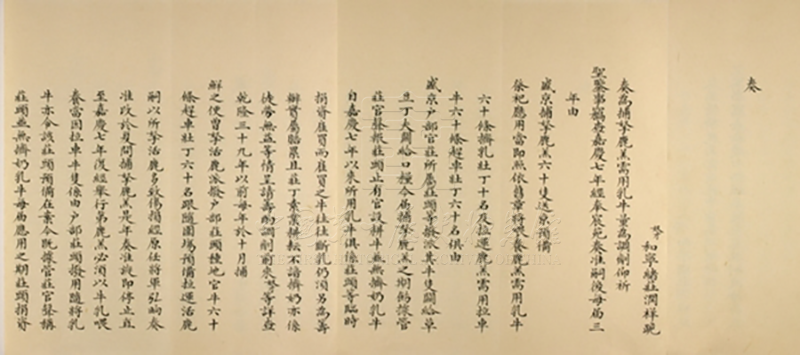 奏
奴才和寧緒莊潤祥跪
奏為捕拏鹿羔需用乳牛量為調劑仰祈
聖鑒事竊查嘉慶七年經奉宸苑奏准嗣後每屆三
年由
盛京捕拏鹿羔六十隻送京預備
祭祀應用當即照依舊章將喂養鹿羔需用乳牛
六十條擠乳壯丁十名及拉運鹿羔需用拉車
牛六十條趕車壯丁六十名俱由
盛京戶部官莊所屬莊頭等撥派其牛隻關給草
豆丁夫關給口糧今屆捕拏鹿羔之期飭據管
莊官聲報莊頭止有官設耕牛並無擠奶乳牛
自嘉慶七年以來所用乳牛俱係莊頭等臨時
捐資雇買而雇買之牛往往斷乳仍須另為籌
辦實屬賠累且莊丁素業耕耘不諳擠奶亦係
徒勞無益等情呈請籌酌調劑前來奴才等詳查
乾隆三十九年以前每年於十月捕
鮮之便曾拏活鹿派撥戶部莊頭種地官牛六十
條趕車壯丁六十名跟隨圍場預備拉運活鹿
嗣以所拏活鹿多致傷損經原任將軍弘晌奏
准改於夏間捕拏鹿羔是年奏准後即停止直
至嘉慶七年復經舉行第鹿羔必須以牛乳喂
養當因拉車牛隻係由戶部莊頭撥用隨將乳
牛亦令該莊頭預備在案今既據管莊官聲稱
莊頭並無擠奶乳牛每屆應用之期莊頭捐資